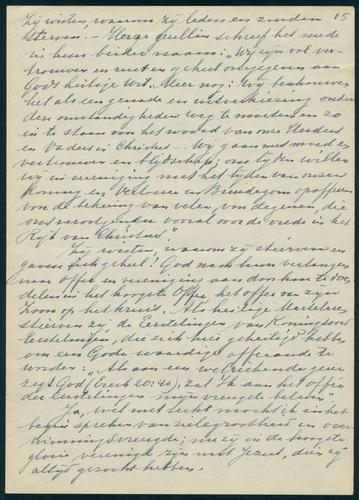 Zij wisten, waarom zij leden en zouden 15
sterven. – Merar Guellin schreef het mede
in hun beider naam: "Wij zijn vol ver-
trouwen en rusten geheel overgegeven aan
God's heilige wil. Meer nog: Wij beschouwen
het als een genade en uitverkiezing onder
deze omstandigheden weg te moeten en zo
in te staan voor het woord van onze Herders
en Vaders in Christus... Wij gaan met moed en
vertrouwen en blijdschap; ons lijden willen
wij in vereniging met het lijden van onzen
Koning en Verlosser en Bruidegom opofferen
voor de bekering van velen, van degenen, die
ons vervolgen en vooral voor de vrede in het
Rijk van Christus"
Zij wisten, waarom zij stierven en
gaven zich geheel! God nam hun verlangen
naar offer en vereniging aan door hen te
delen in het hoogste Offer, het offer van zijn
Zoon op het kruis. Als heilige Martelaren
stierven zij, de Eerstelingen van Koningsoord
Eerstelingen, die zich hier geheiligd hebben
om een Gode waardige offerande te
worden: "Als aan een welriekende geur
zegt God (Ezech 20:40), zal Ik aan het offer
der eerstelingen mijn vreugde beleven".
Ja, wel met recht mocht ik in het
begin spreken van zielegrootheid en over-
winningsvreugde; nu zij in de hoogste
glorie verenigd zijn met Jezus, dien zij
altijd gezocht hebben.